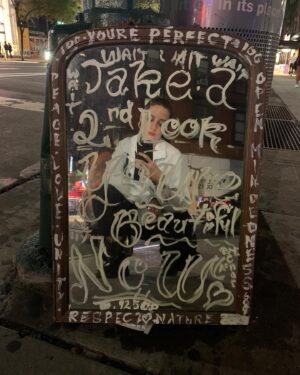 100 YOU'RE PERFECT 100
WAIT WAIT WAIT
Take a
2nd Look
Your
Beautiful
Now
PEACE LOVE UNITY
OPEN MINDEDNESS
RESPECT NATURE